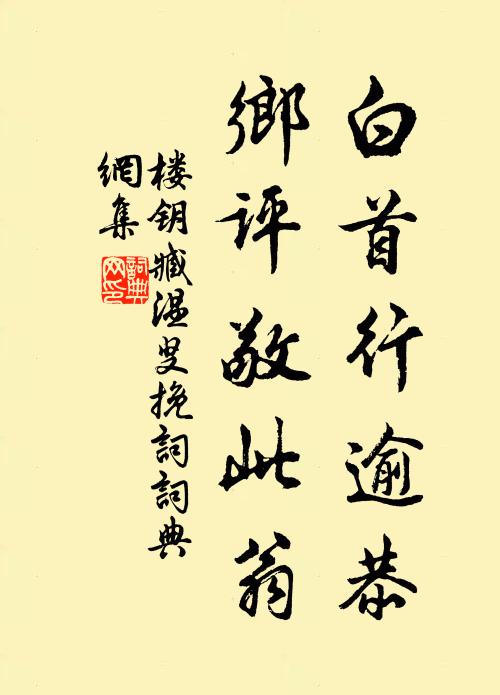 白首行逾恭
鄉評敬此翁
楼钥臧温叟挽詞詞典
網集
詞典
网印